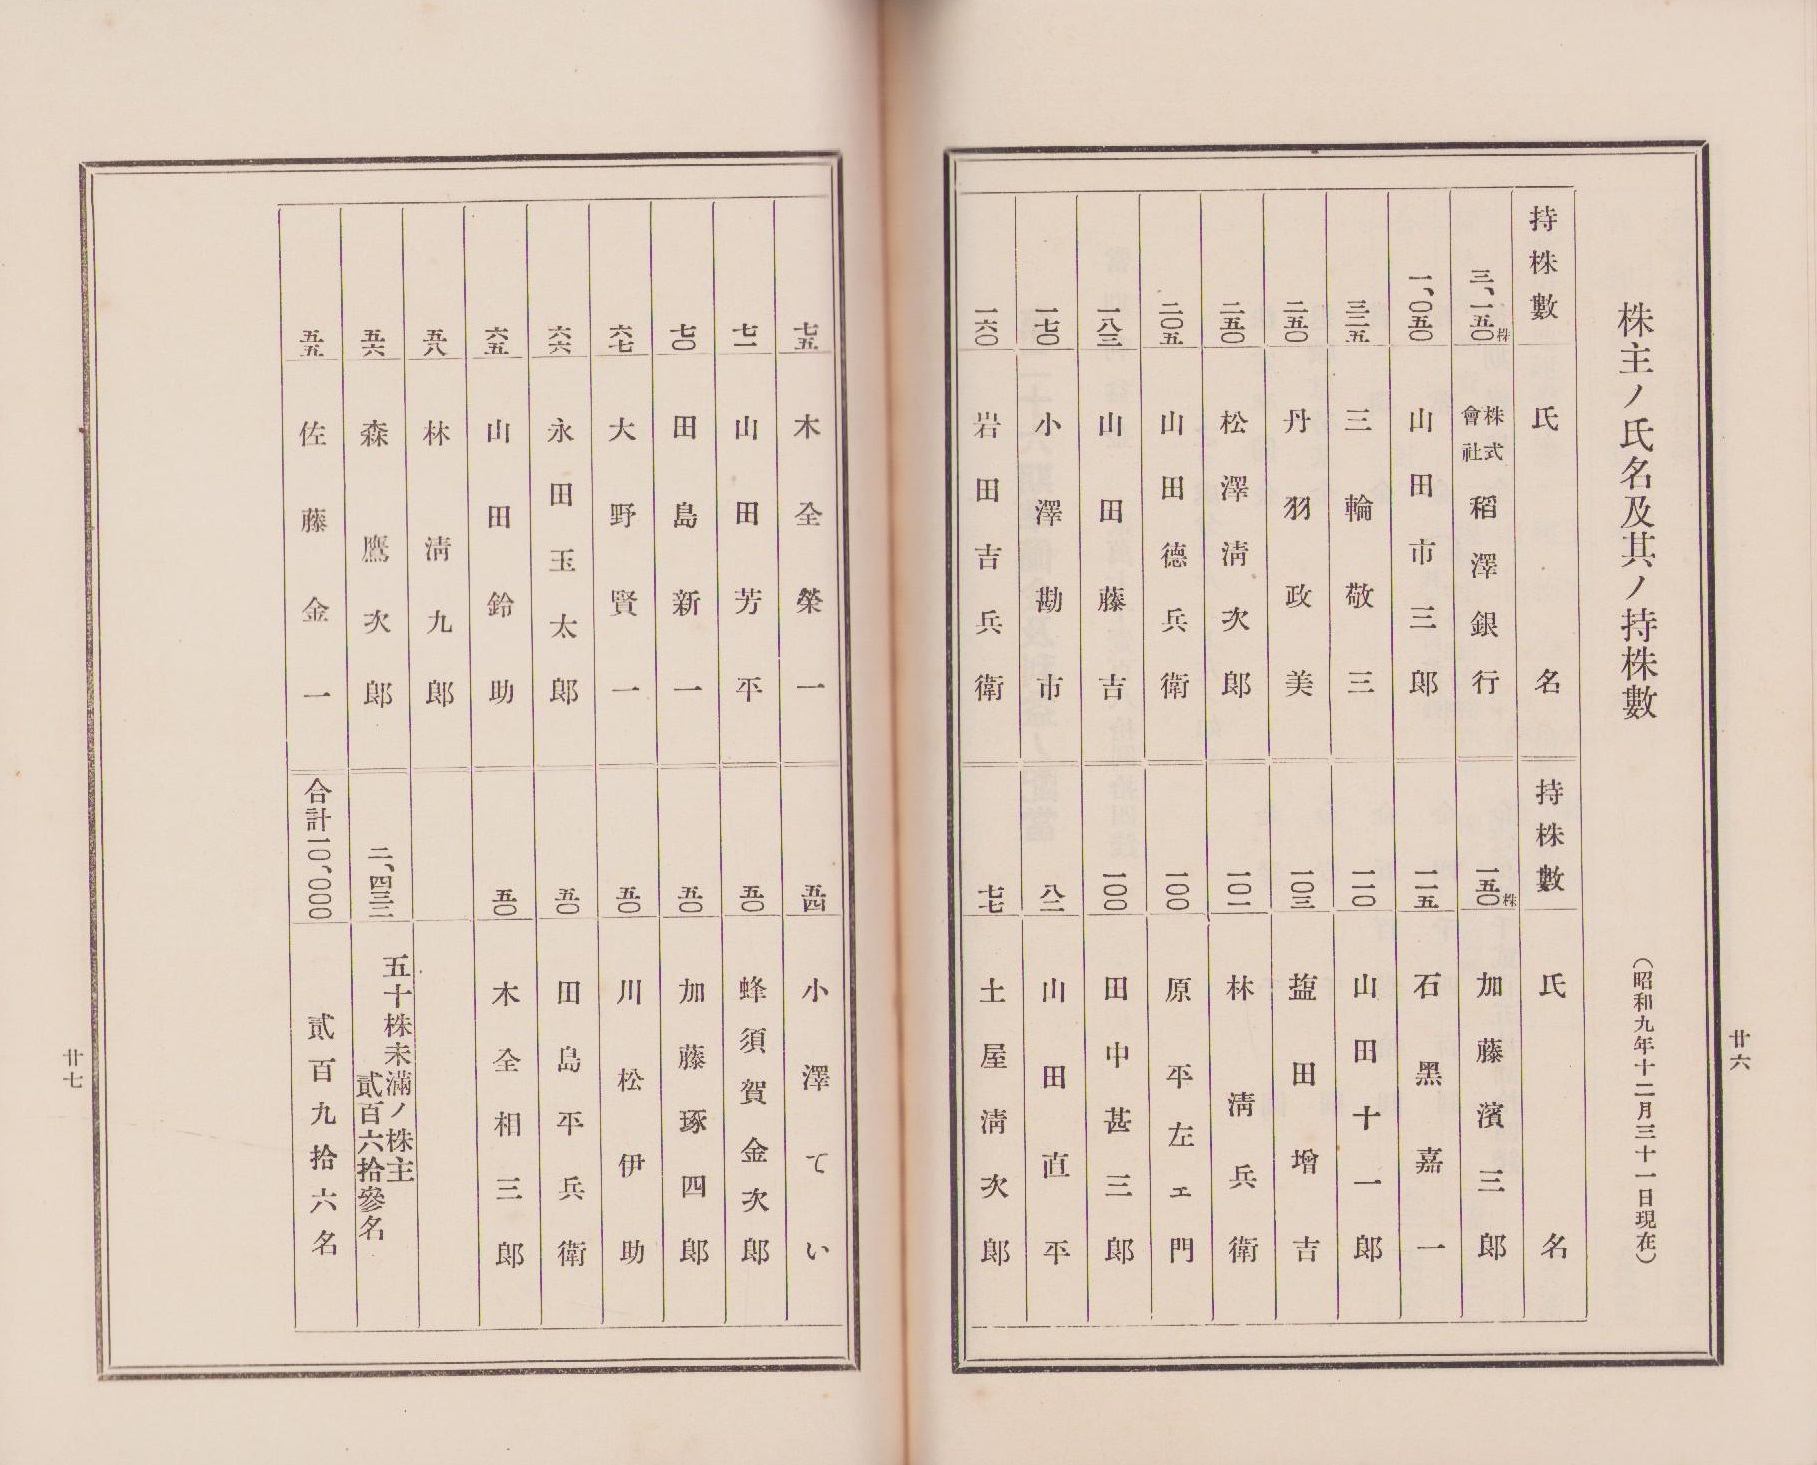 株主ノ氏名及其ノ持株數
（昭和九年十二月三十一日現在）
持株數 氏名
三、一五〇株 株式會社稻澤銀行
一、〇五〇 山田市三郎
三二五 三輪敬三
二五〇 丹羽政美
二五〇 松澤淸次郎
二〇五 山田德兵衛
一八三 山田藤吉
一七〇 小澤勘市
一六〇 岩田吉兵衛
持株數 氏名
一五〇株 加藤濱三郎
一一五 石黑嘉一
一一〇 山田十一郎
一〇三 塩田增吉
一〇二 林淸兵衛
一〇〇 原平左ェ門
一〇〇 田中甚三郎
八二 山田直平
七七 土屋淸次郎
廿六
七五 木全榮一
七一 山田芳平
七〇 田島新一
六七 大野賢一
六六 永田玉太郎
六五 山田鈴助
五八 林淸九郎
五六 森鷹次郎
五五 佐藤金一
五四 小澤てい
五〇 蜂須賀金次郎
五〇 加藤琢四郎
五〇 川松伊助
五〇 田島平兵衛
五〇 木全相三郎
二、四三二 五十株未滿ノ株主
貳百六拾參名
合計一〇、〇〇〇 貳百九拾六名
廿七